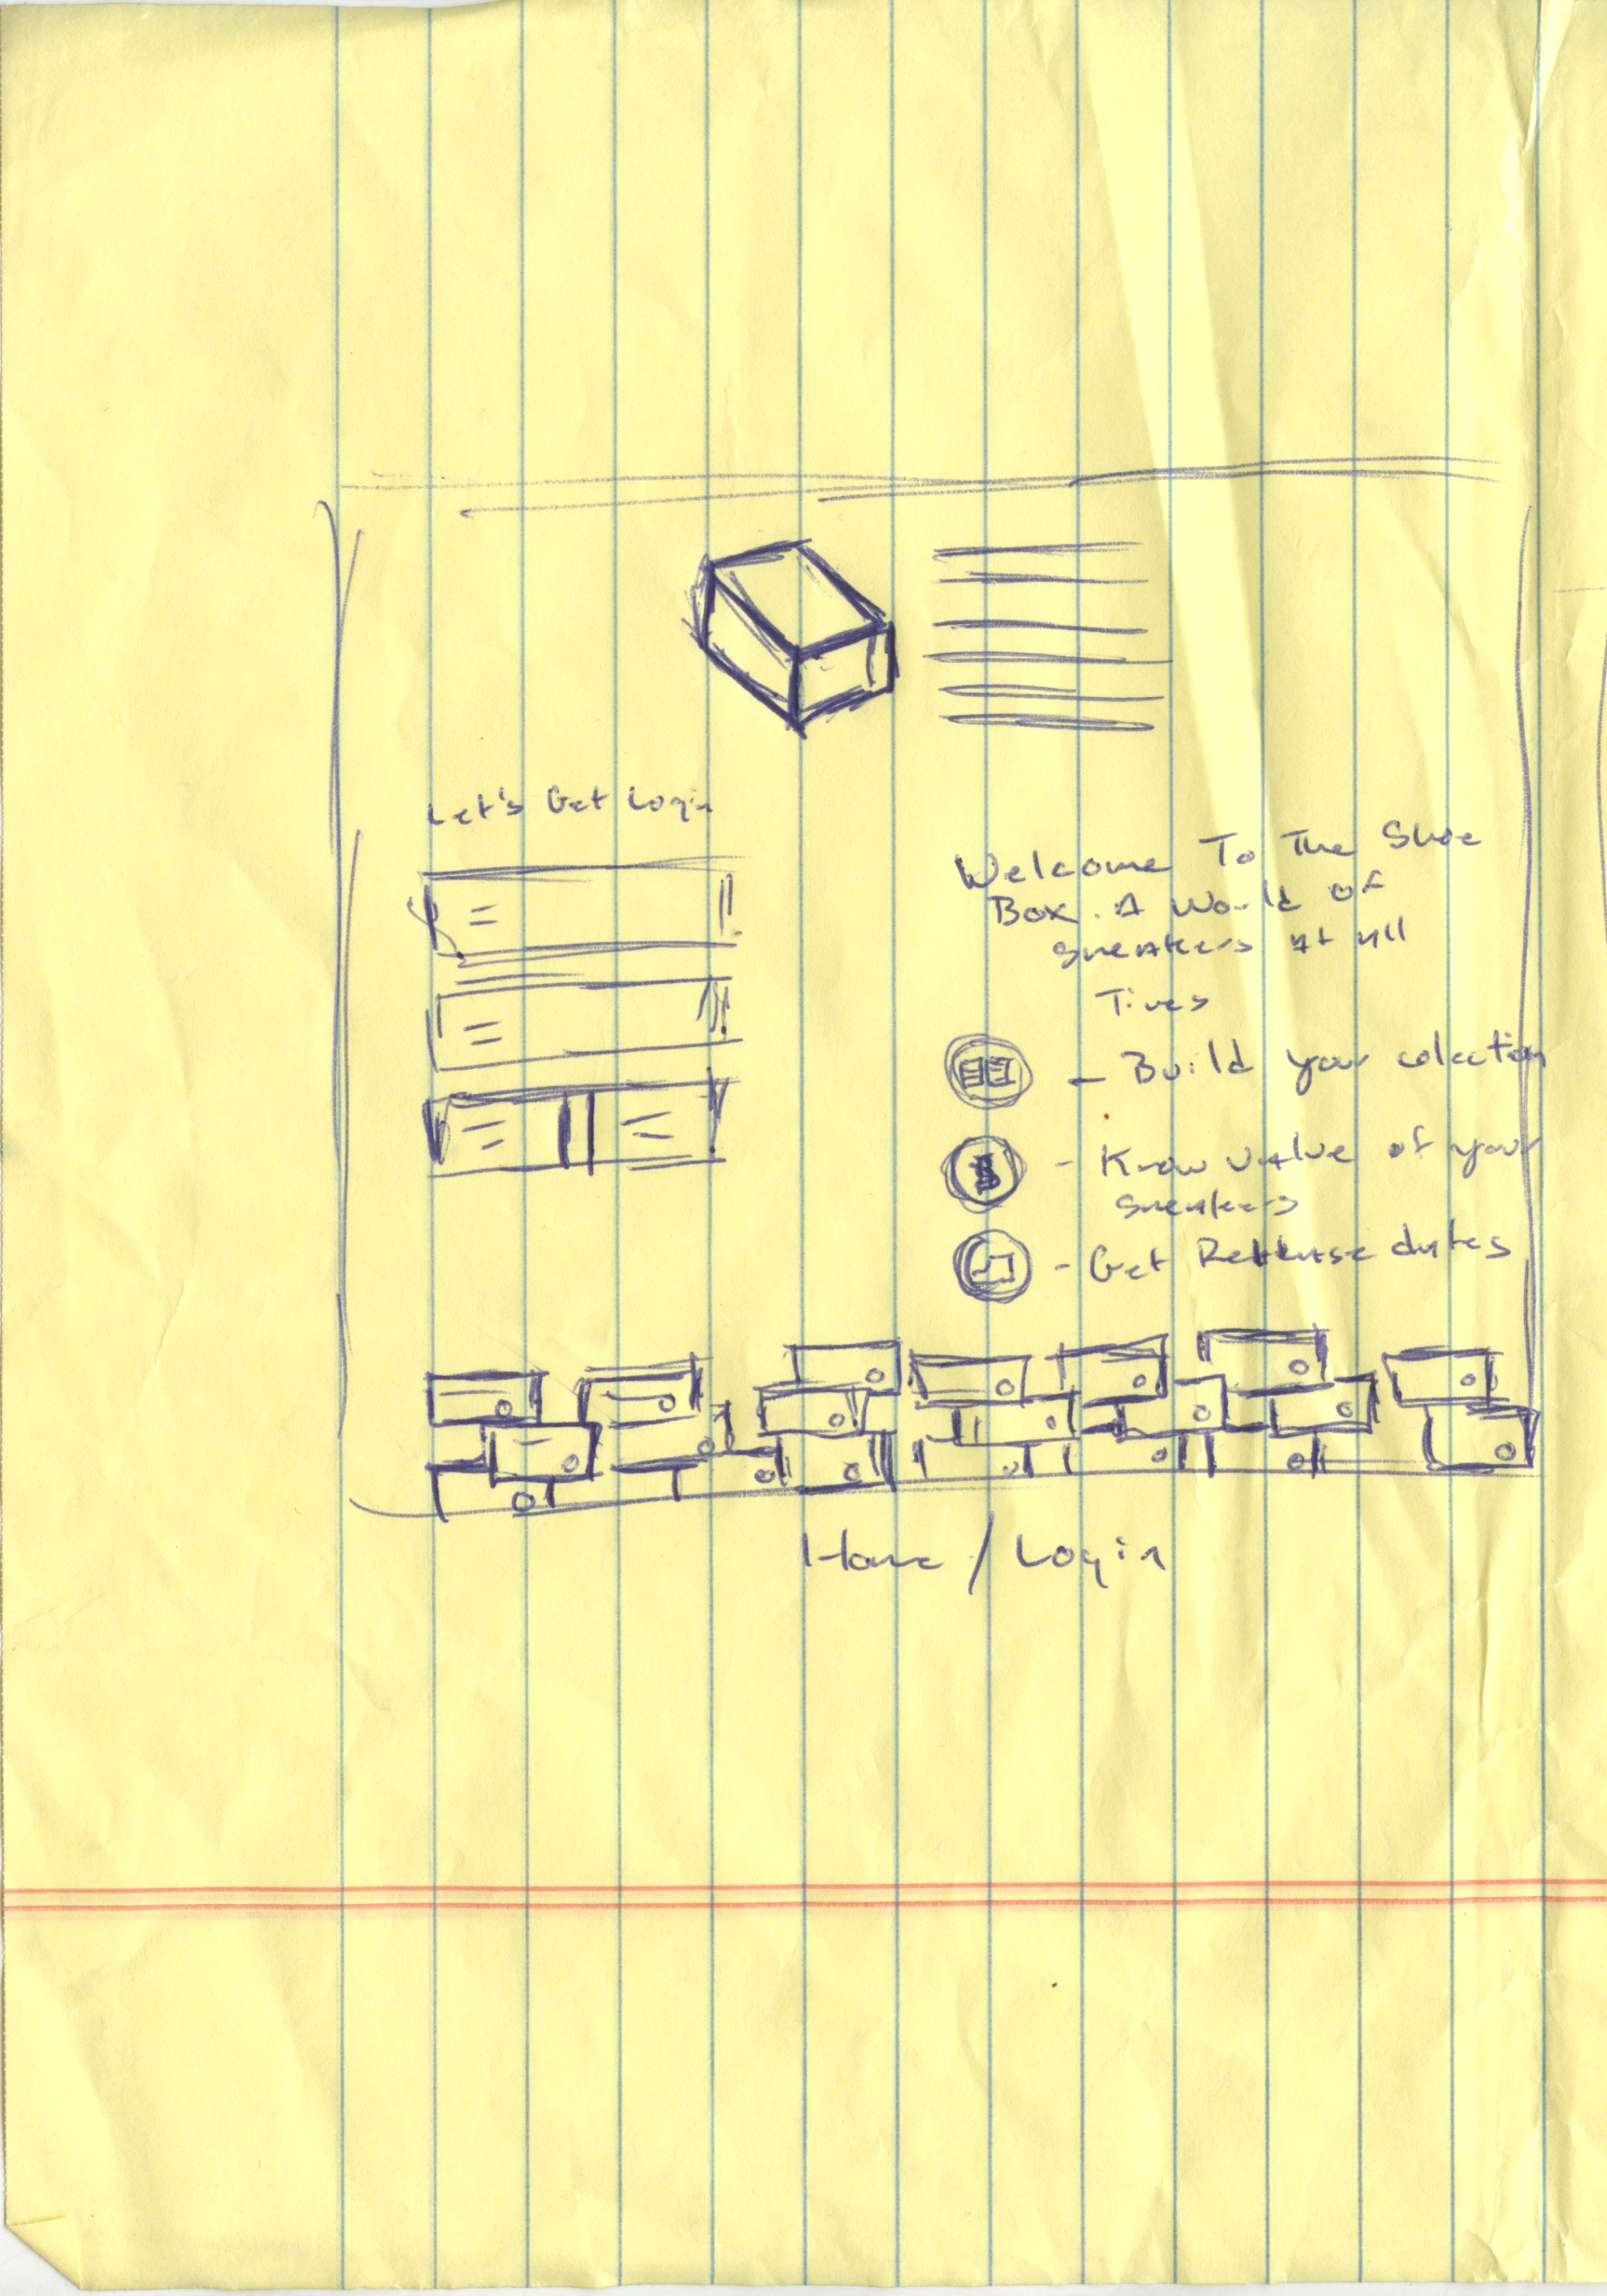 Let's Get Login
Welcome To The Shoe
Box. A World of
sneakers at all
Times
- Build your colection
$ - Know value of your
sneakers
- Get Release dates
Home / Login